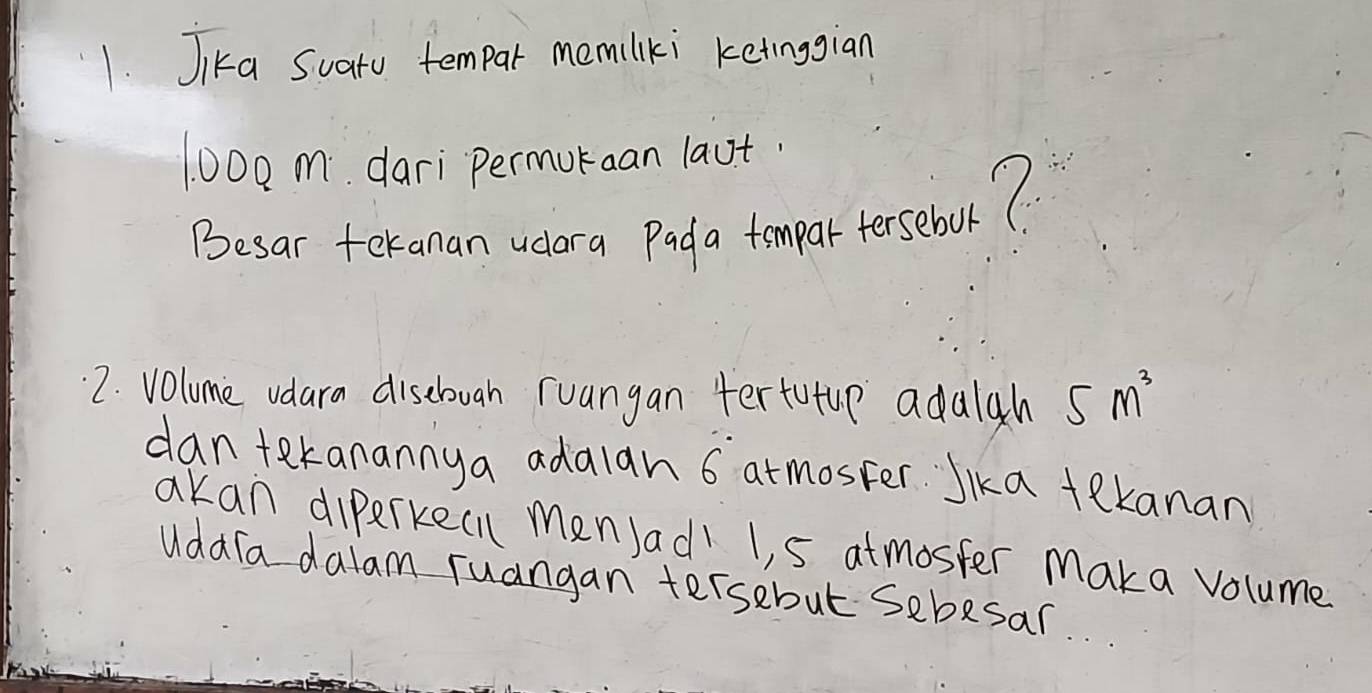 1. Jika Suatu tempat memiliki ketinggian
1.000 m. dari permukaan laut.
Besar tekanan udara pada tempat tersebut?
2. Volume udara disebuah ruangan tertutup adalah 5 m³
dan tekanannya adalah 6 atmosfer. Jika tekanan
akan diperkecil menjadi 1,5 atmosfer maka volume
udara dalam ruangan tersebut sebesar...